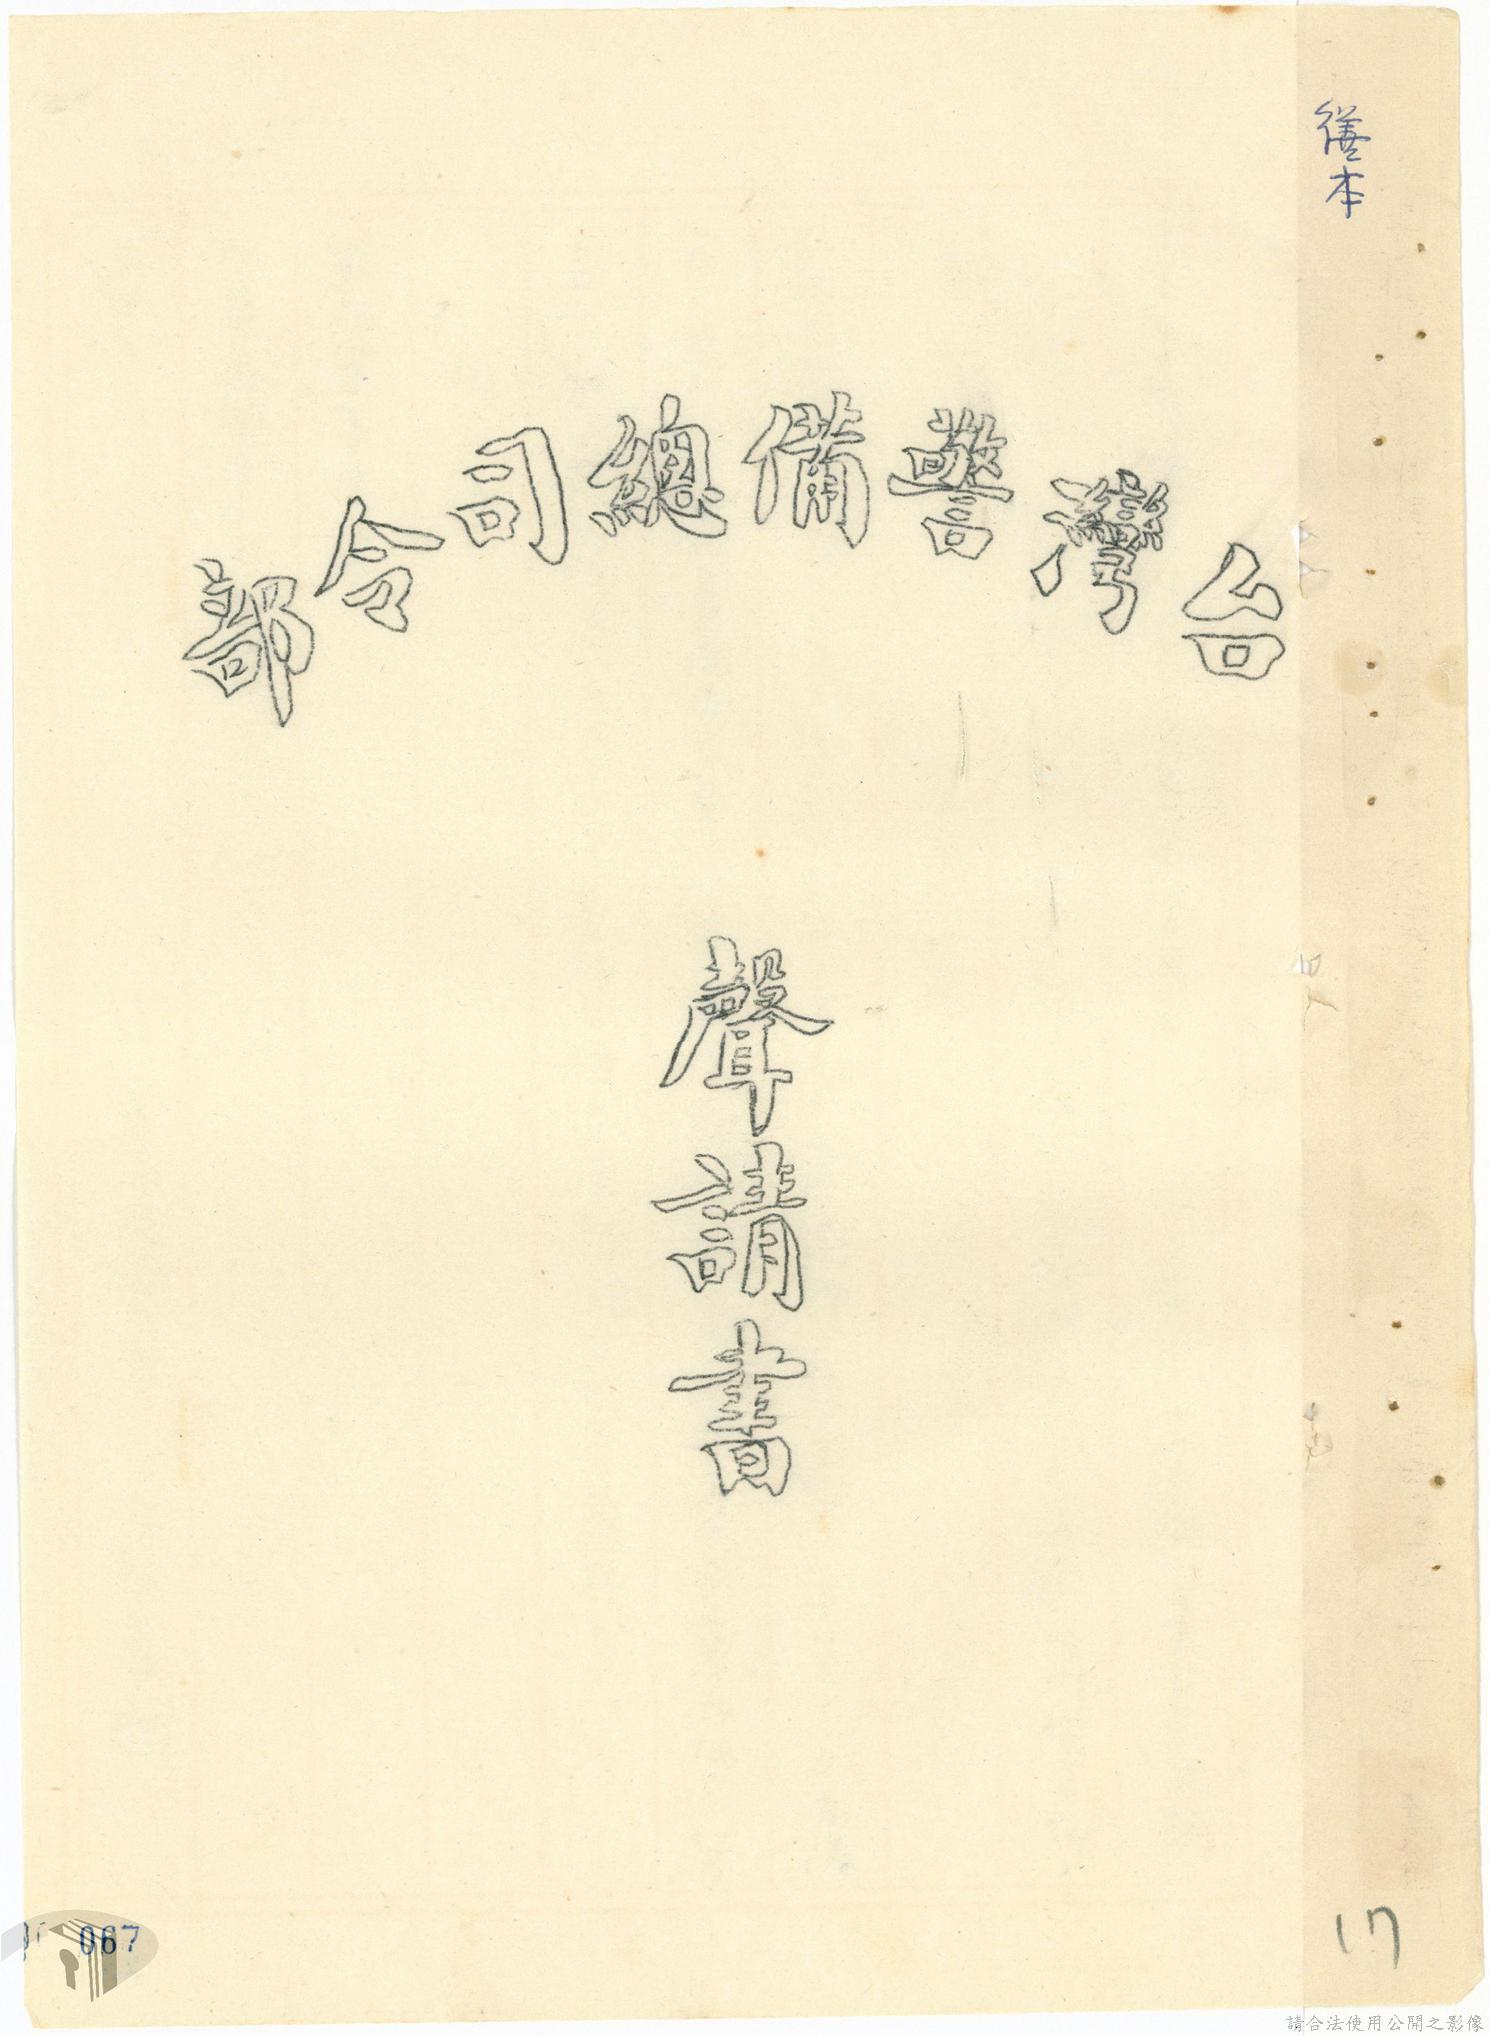 繕本
台灣警備總司令部
聲請書
17
067
請合法使用公開之影像